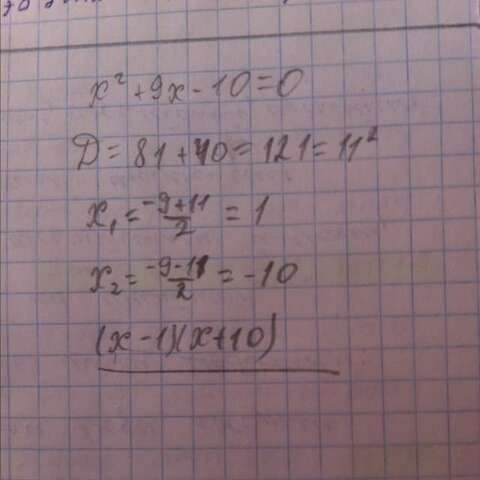 x² + 9x - 10 = 0
D = 81 + 40 = 121 = 11²
x₁ = (-9+11)/2 = 1
x₂ = (-9-11)/2 = -10
(x - 1)(x + 10)